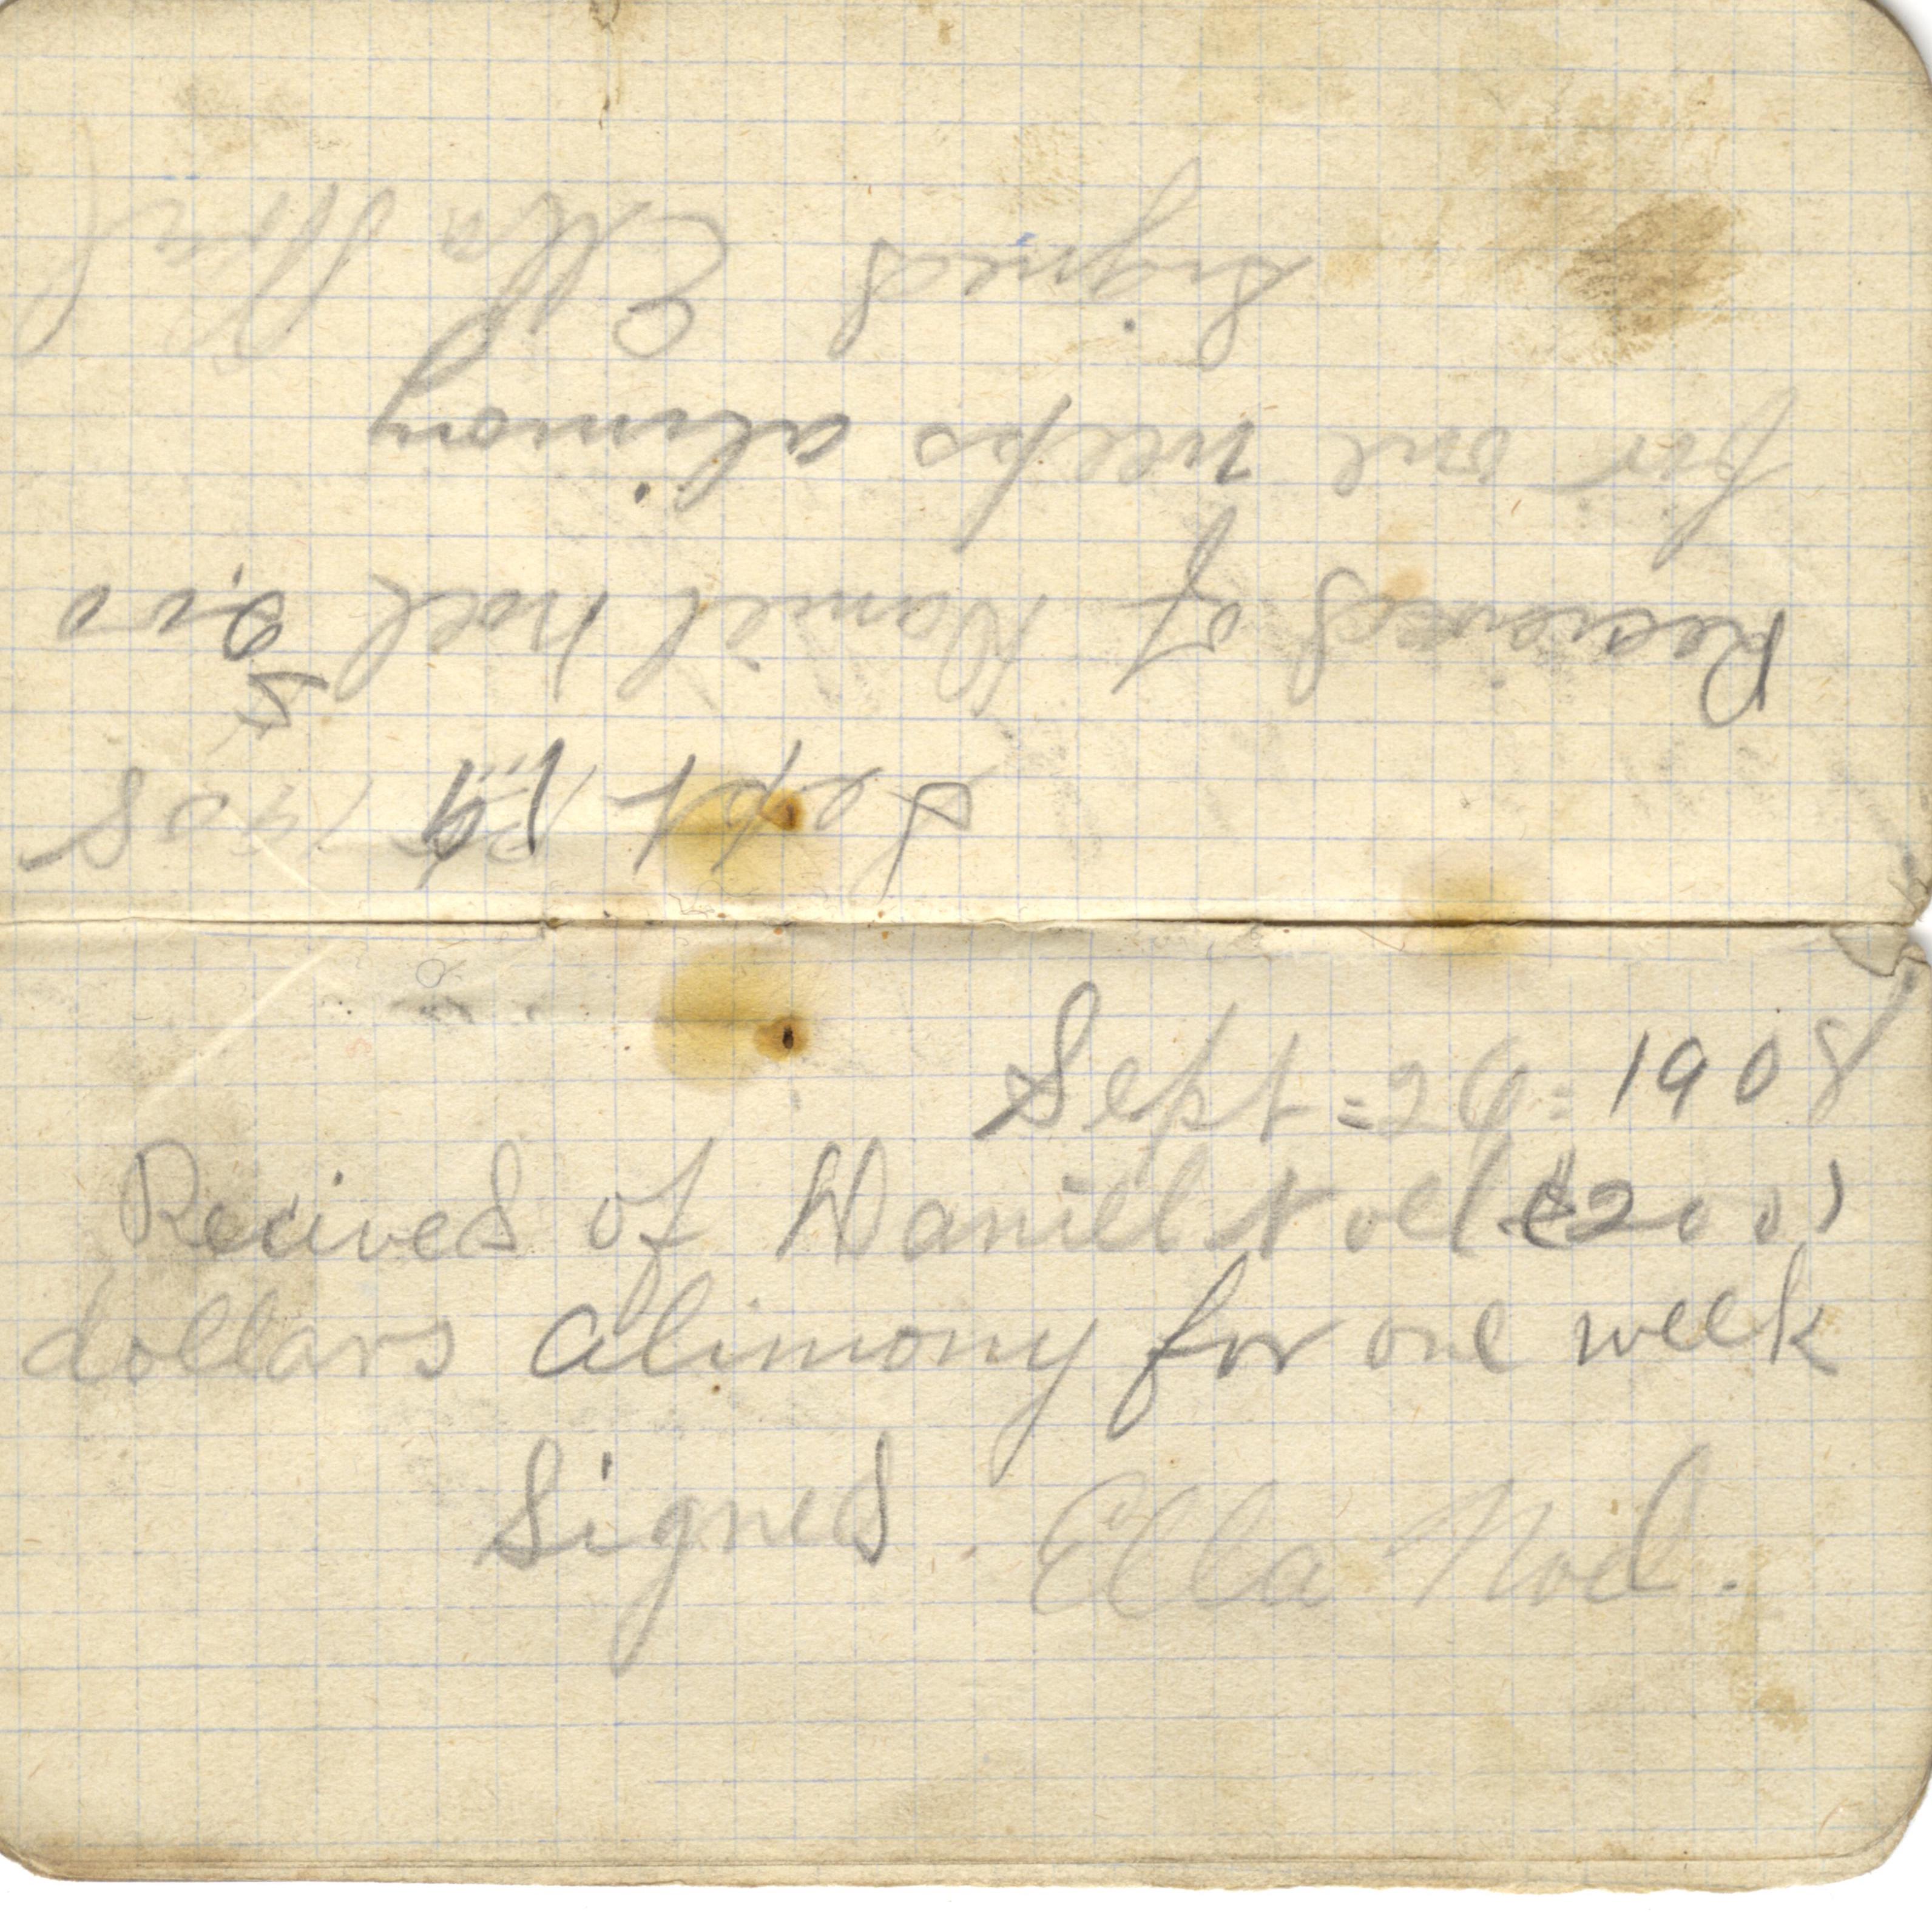 Sept 19 1908
Recieved of Daniel Noel 2.00
for one weeks alimony
Signed Ella Noel
Sept = 26 = 1908
Recived of Daniel Noel $2.00
dollars alimony for one week
Signed. Ella Noel.